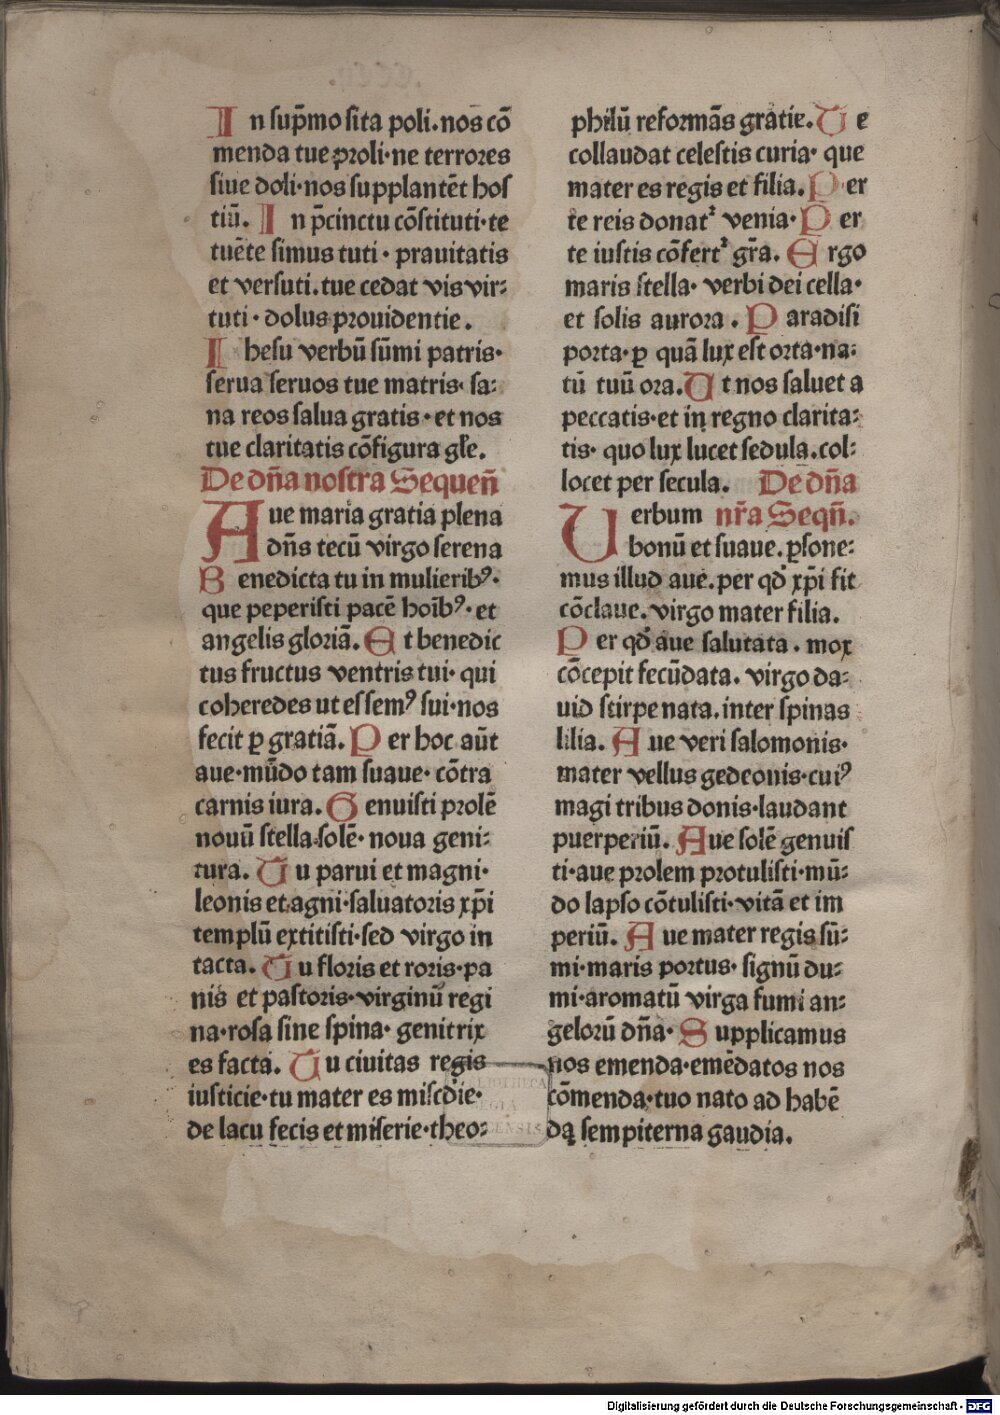 In sup̄mo sita poli. nos cō
menda tue proli· ne terrores
siue doli· nos supplantēt hos
tiū. In p̄cinctu cōstituti· te
tuēte simus tuti· prauitatis
et versuti. tue cedat vis vir-
tuti· dolus prouidentie.
Ihesu verbū sūmi patris·
serua seruos tue matris· sa-
na reos salua gratis· et nos
tue claritatis cōfigura glīe.
De dn̄a nostra Sequen̄
Aue maria gratia plena
dn̄s tecū virgo serena
Benedicta tu in mulieribꝰ·
que peperisti pacē hoībꝰ· et
angelis gloriā. Et benedic
tus fructus ventris tui· qui
coheredes ut essemꝰ sui· nos
fecit ꝑ gratiā. Per hoc aūt
aue· mūdo tam suaue· cōtra
carnis iura. Genuisti prolē
nouū stella solē· noua geni-
tura. Tu parui et magni·
leonis et agni· saluatoris xp̄i
templū extitisti· sed virgo in
tacta. Tu floris et roris· pa
nis et pastoris· virginū regi
na· rosa sine spina· genitrix
es facta. Tu ciuitas regis
iusticie· tu mater es mīscdie·
de lacu fecis et miserie· theo-
philū reformās gratie. Te
collaudat celestis curia· que
mater es regis et filia. Per
te reis donat᷑ venia· Per
te iustis cōfert᷑ gr̄a. Ergo
maris stella· verbi dei cella·
et solis aurora. Paradisi
porta· ꝑ quā lux est orta· na-
tū tuū ora. Ut nos saluet a
peccatis· et in regno clarita-
tis· quo lux lucet sedula. col-
locet per secula. De dn̄a
nr̄a Seqn̄.
Uerbum
bonū et suaue. ꝑsone-
mus illud aue. per qd̄ xp̄i fit
cōclaue. virgo mater filia.
Per qd̄ aue salutata. mox
cōcepit fecūdata. virgo da-
uid stirpe nata. inter spinas
lilia. Aue veri salomonis·
mater vellus gedeonis· cuiꝰ
magi tribus donis· laudant
puerperiū. Aue solē genuis
ti· aue prolem protulisti· mū-
do lapso cōtulisti· vitā et im
periū. Aue mater regis sū-
mi· maris portus· signū du-
mi· aromatū virga fumi an-
gelorū dn̄a· Supplicamus
nos emenda· emēdatos nos
cōmenda· tuo nato ad habē
dā sempiterna gaudia.
BIBLIOTHECA
REGIA
MONACENSIS
Digitalisierung gefördert durch die Deutsche Forschungsgemeinschaft - DFG